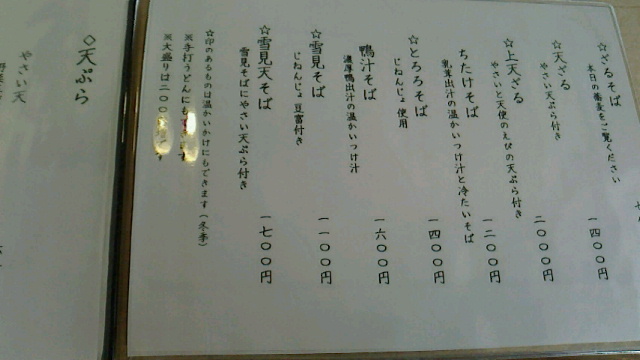 ☆ざるそば
本日の蕎麦をご覧ください
☆天ざる
やさい天ぷら付き
一四〇〇円
☆上天ざる
やさいと天使のえびの天ぷら付き
二〇〇〇円
ちたけそば
乳茸出汁の温かいつけ汁と冷たいそば
一二〇〇円
☆とろろそば
じねんじょ使用
一四〇〇円
鴨汁そば
濃厚鴨出汁の温かいつけ汁
一六〇〇円
☆雪見そば
じねんじょ豆富付き
一一〇〇円
☆雪見天そば
雪見そばにやさい天ぷら付き
一七〇〇円
☆印のあるものは温かいかけにもできます(冬季)
※手打うどんにも
※大盛りは二〇〇
◇天ぷら
やさい天